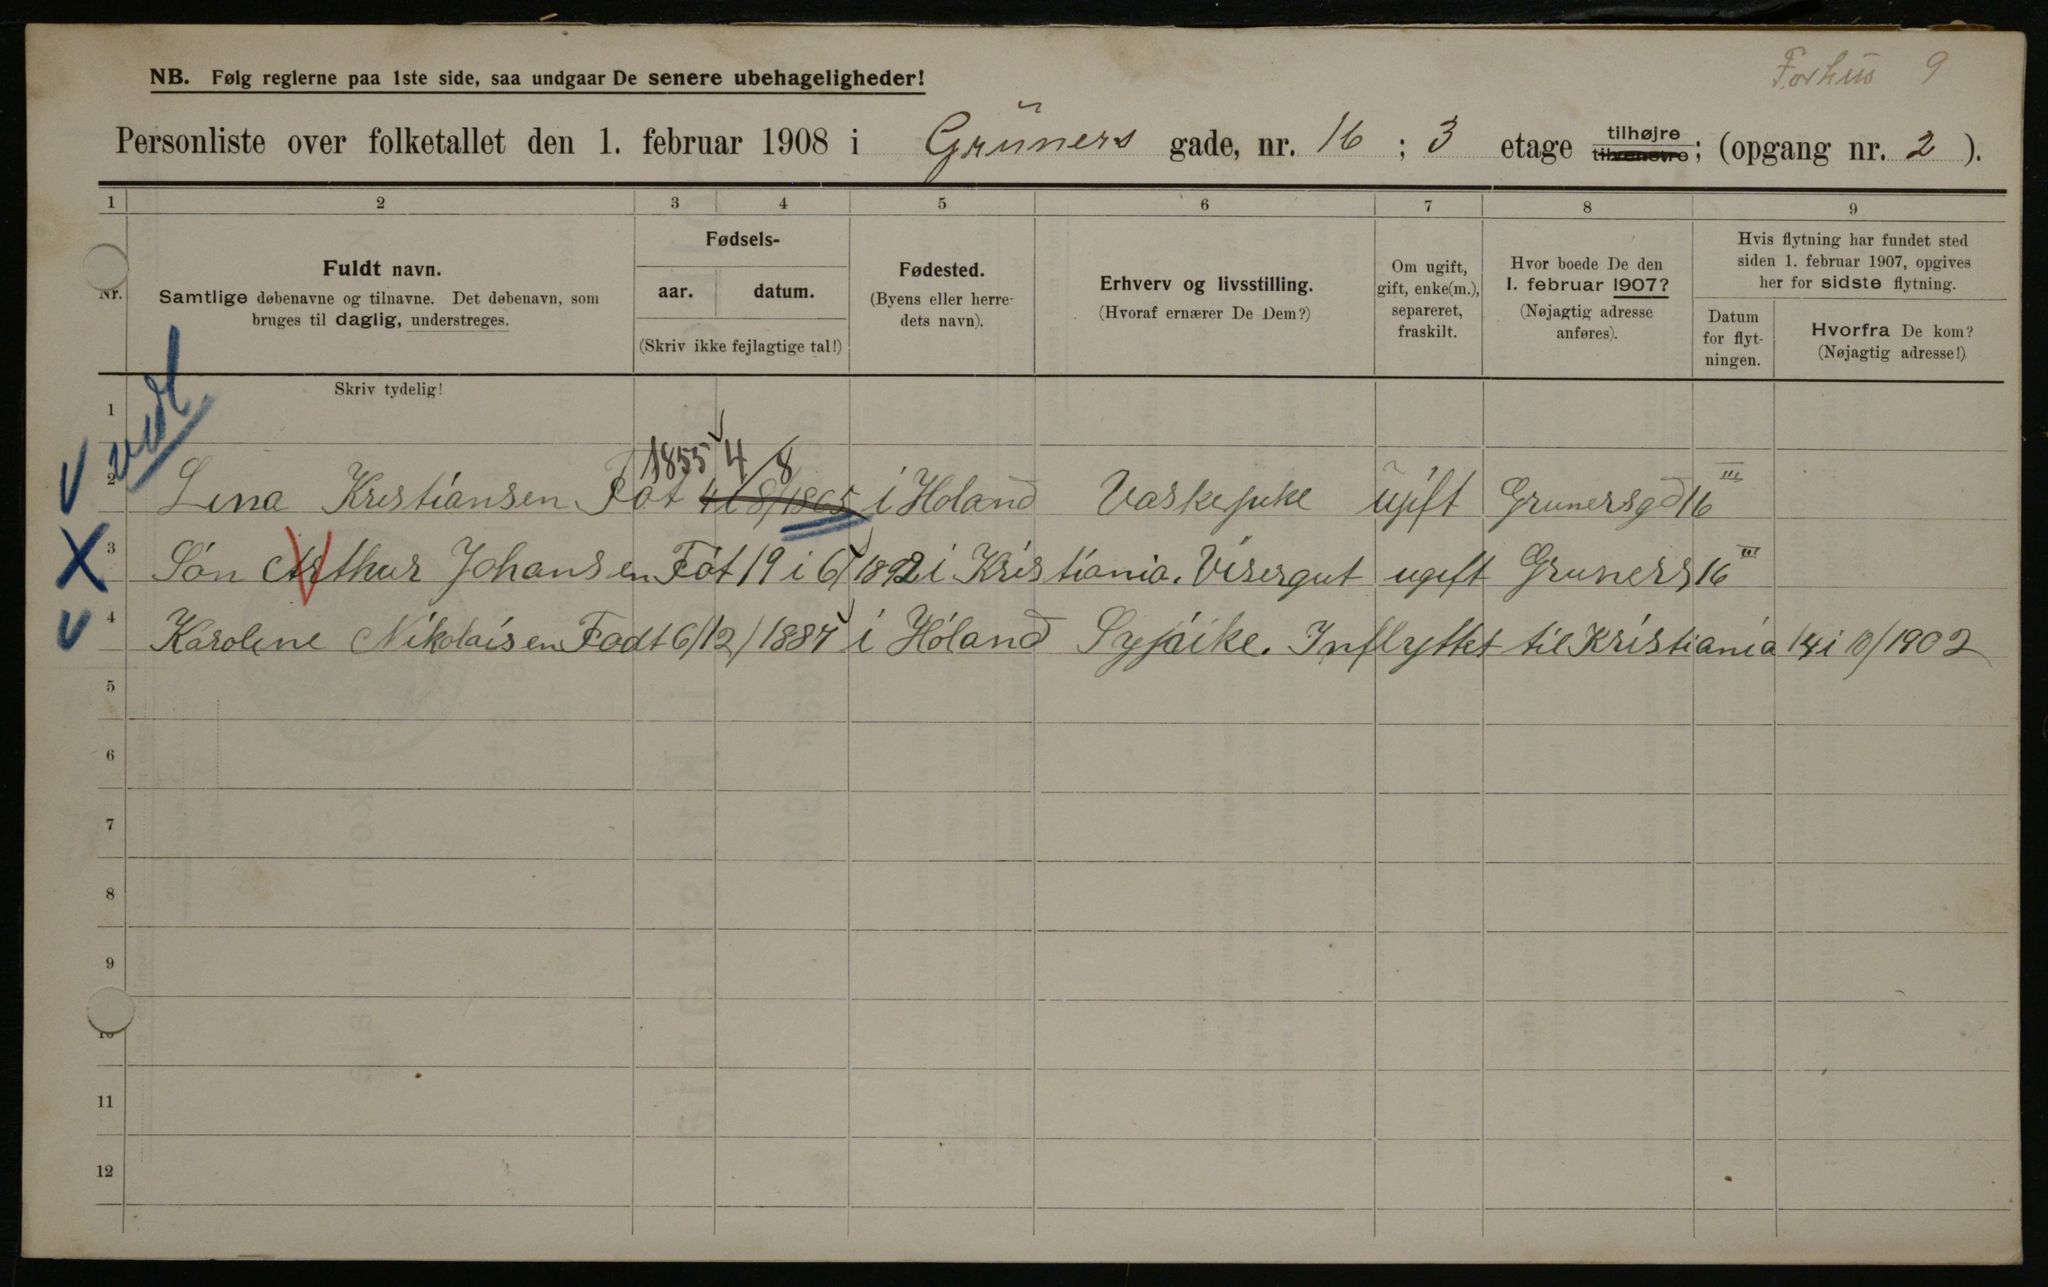 Forhus 9
NB. Følg reglerne paa 1ste side, saa undgaar De senere ubehageligheder!
Personliste over folketallet den 1. februar 1908 i Grüners gade, nr. 16 ; 3 etage tilhøjre tilvenstre; (opgang nr. 2 ).
1 2 3 4 5 6 7 8 9
Nr.
Fuldt navn.
Samtlige døbenavne og tilnavne. Det døbenavn, som
bruges til daglig, understreges.
Fødsels-
aar. datum.
(Skriv ikke fejlagtige tal!)
Fødested.
(Byens eller herre-
dets navn).
Erhverv og livsstilling.
(Hvoraf ernærer De Dem?)
Om ugift,
gift, enke(m.),
separeret,
fraskilt.
Hvor boede De den
1. februar 1907?
(Nøjagtig adresse
anføres).
Hvis flytning har fundet sted
siden 1. februar 1907, opgives
her for sidste flytning.
Datum
for flyt-
ningen.
Hvorfra De kom?
(Nøjagtig adresse!)
Skriv tydelig!
1
1855 4/8
2 Lina Kristiansen Föt 4 i 8/1865 i Höland Vaskepike ugift Grunersgd 16 III
3 Sön Arthur Johansen Föt 19 i 6/1892 i Kristiania. Visergut ugift Gruners 16 III
4 Karoline Nikolaisen Födt 6/12/1887 i Höland Sypike. Inflyttet til Kristiania 14 i 10/1902
5
6
7
8
9
10
11
12